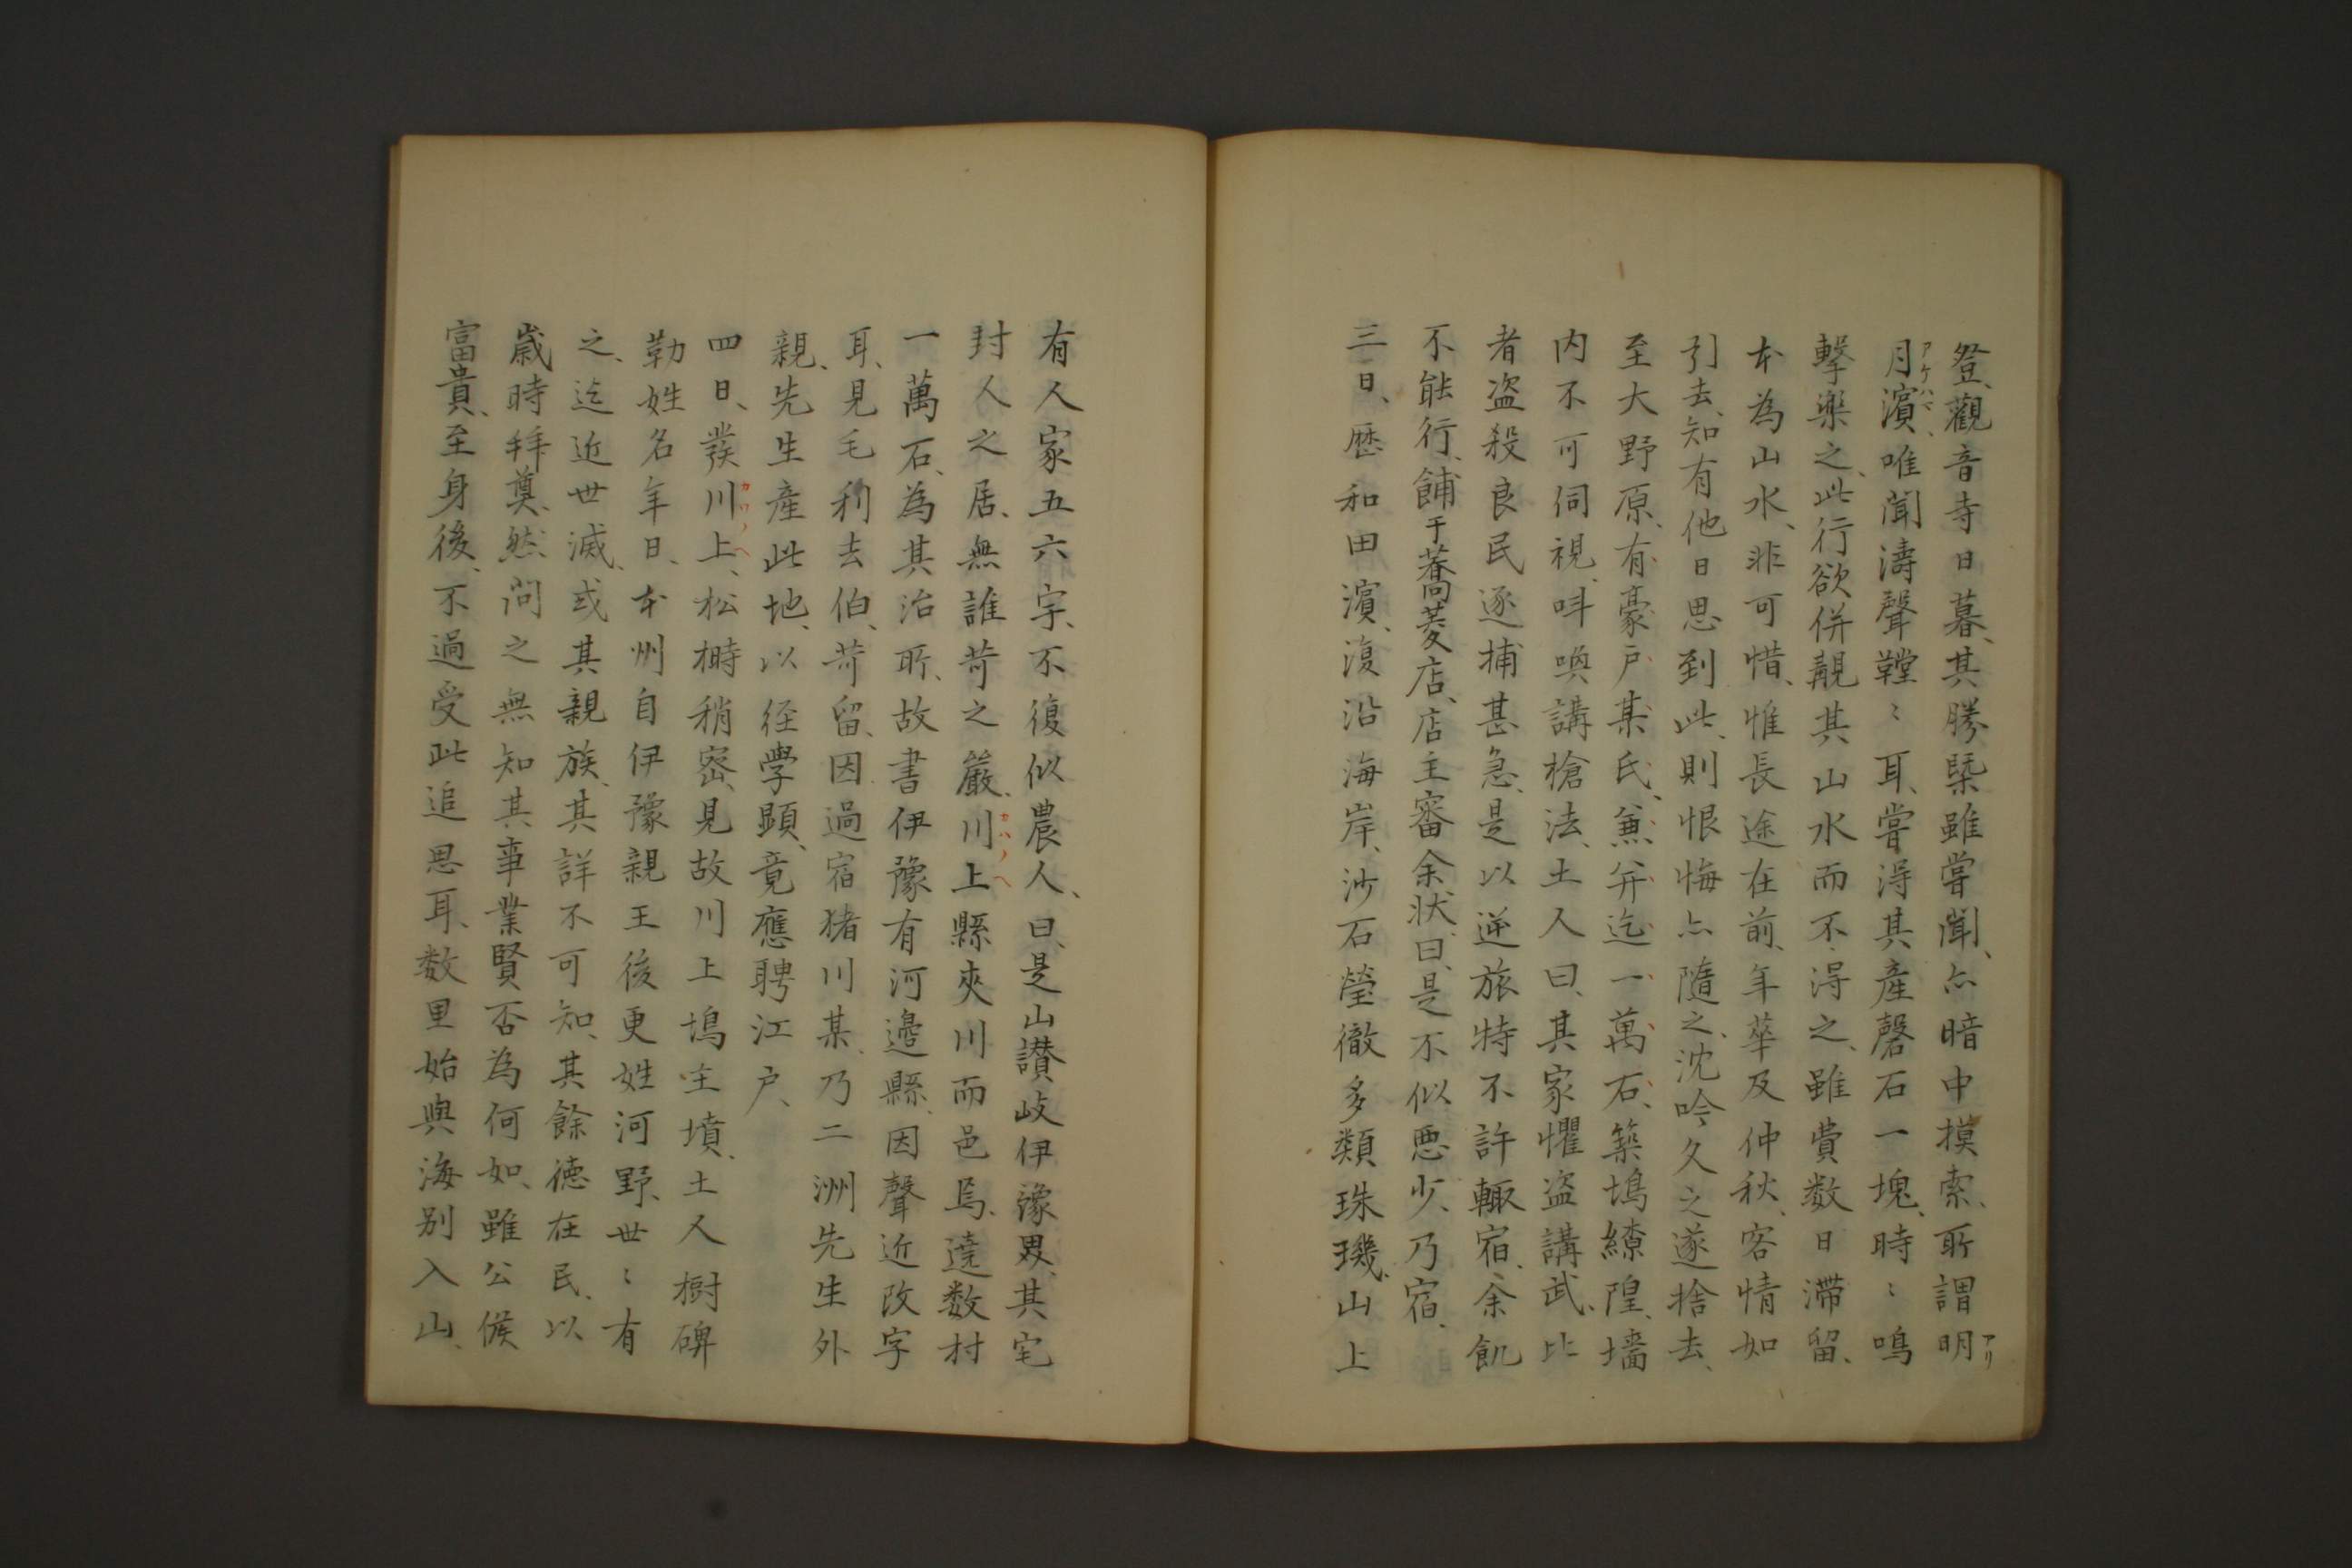 登、觀音寺日暮、其勝槩雖嘗聞、亦暗中摸索、所謂明
月濱、唯聞濤聲鞺〻耳、嘗得其產磬石一塊、時〻鳴
擊樂之、此行欲併覯其山水而不得之、雖費数日滯留、
本為山水、非可惜、惟長途在前、年華及仲秋、客情如
引去、知有他日思到此、則恨悔亦隨之、沈吟久之遂捨去、
至大野原、有豪戸某氏、兼并迄一萬石、築塢繚隍、墻
内不可伺視、呌喚講槍法、土人曰、其家懼盗講武、比
者盗殺良民逐捕甚急、是以逆旅特不許輙宿、余飢
不能行、餔于蕎麥店、店主審余状曰、是不似悪少、乃宿、
三日、歴和田濱、復沿海岸、沙石瑩徹多類珠璣、山上
有人家五六宇、不復似農人、曰、是山讃岐伊豫界、其宅
封人之居、無誰苛之嚴、川上縣夾川而邑焉、遶数村
一萬石、為其治所、故書伊豫有河邉縣、因聲近改字
耳、見毛利去伯、苛留、因過宿猪川某、乃二洲先生外
親、先生產此地、以経學顕、竟應聘江户、
四日、發川上、松樹稍密、見故川上塢主墳、土人樹碑
勒姓名年日、本州自伊豫親王後更姓河野、世〻有
之、迄近世滅、或其親族、其詳不可知、其餘徳在民、以
歳時拜奠、然問之無知其事業賢否為何如、雖公侯
富貴、至身後、不過受此追思耳、数里始與海别入山、